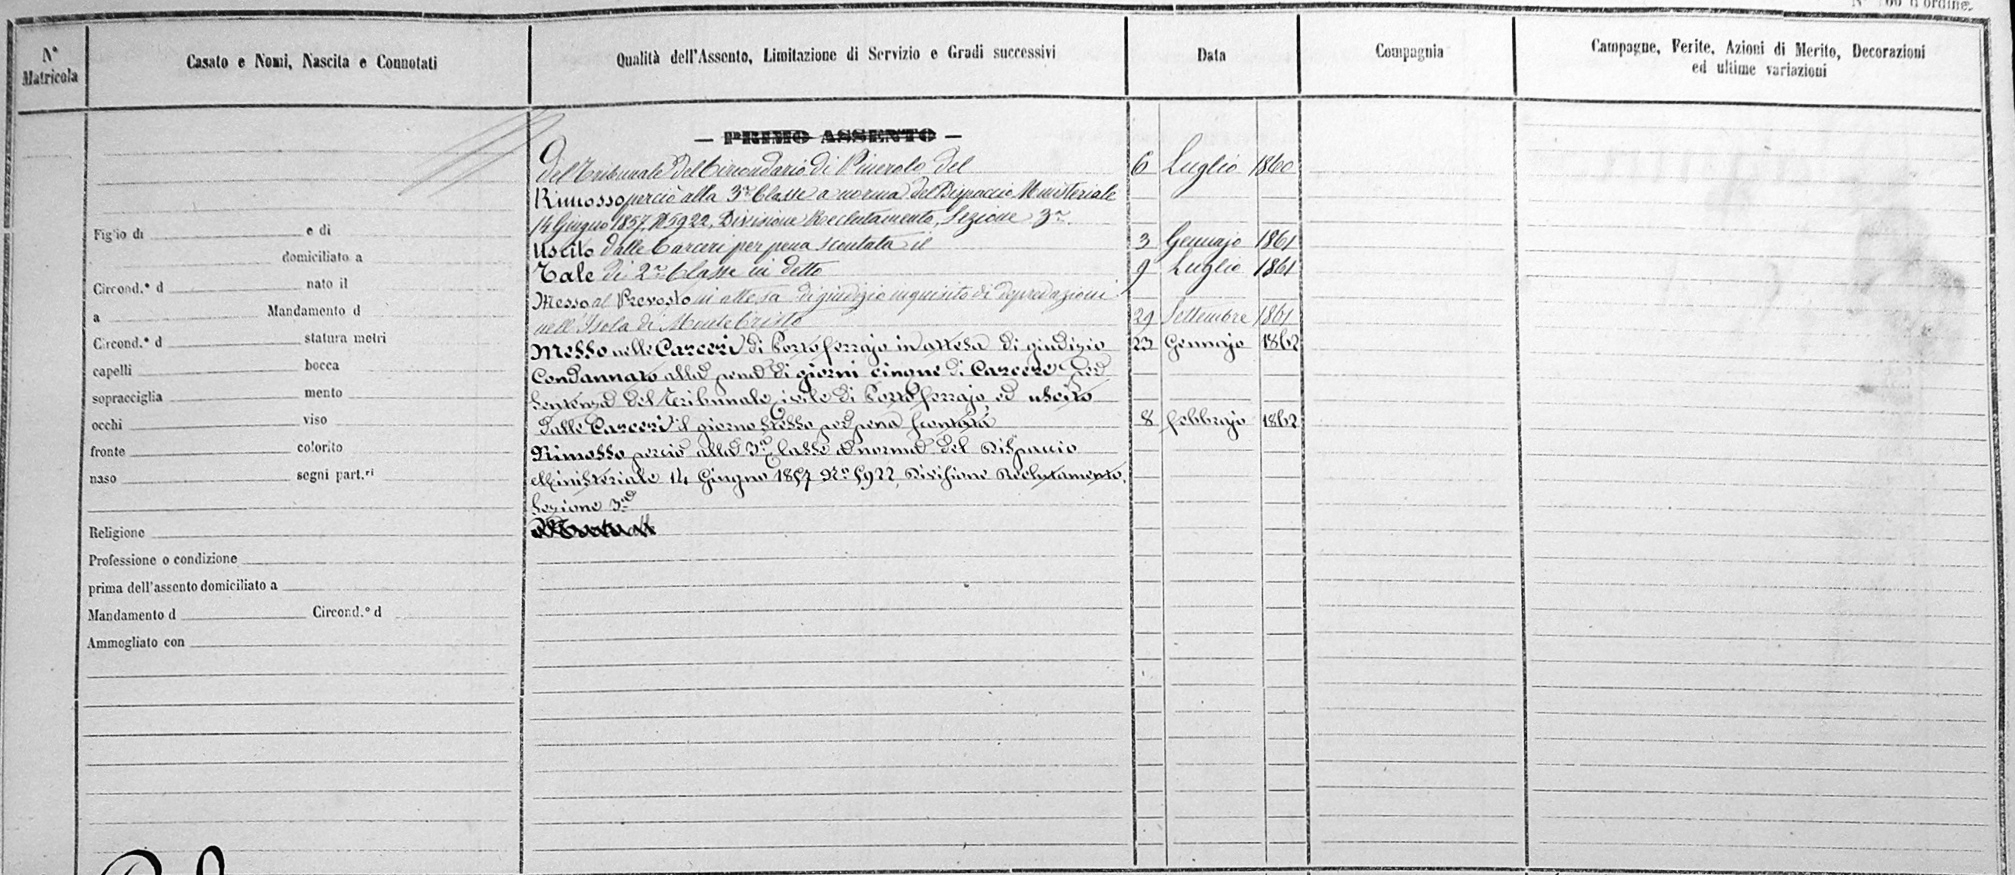 d'ordine.
N° Matricola
Casato e Nomi, Nascita e Connotati
Qualità dell'Assento, Limitazione di Servizio e Gradi successivi
Data
Compagnia
Campagne, Ferite, Azioni di Merito, Decorazioni
ed ultime variazioni
— PRIMO ASSENTO —
del Tribunale del Circondario di Pinerolo del 6 Luglio 1860
Rimosso perciò alla 3ª Classe a norma del Dispaccio Ministeriale
14 Giugno 1857, N° 5922, Divisione Reclutamento, Sezione 3ª
Uscito dalle Carceri per pena scontata il 3 Gennajo 1861
Tale di 2ª Classe in detto 9 Luglio 1861
Messo al Prevosto in attesa di giudizio inquisito di depredazioni
nell'Isola di Monte Cristo 29 Settembre 1861
Messo nelle Carceri di Porto ferrajo in attesa di giudizio 23 Gennajo 1862
Condannato alla pena di giorni cinque di Carcere per
Sentenza del Tribunale civile di Porto ferrajo ed uscito
dalle Carceri il giorno stesso per pena scontata 8 febbrajo 1862
Rimosso perciò alla 3ª Classe a norma del Dispaccio
Ministeriale 14 Giugno 1857 N° 5922 Divisione Reclutamento,
Sezione 3ª
Figlio di e di
domiciliato a
Circond.° d nato il
a Mandamento d
Circond.° d statura metri
capelli bocca
sopracciglia mento
occhi viso
fronte colorito
naso segni part.ri
Religione
Professione o condizione
prima dell'assento domiciliato a
Mandamento d Circond.° d
Ammogliato con